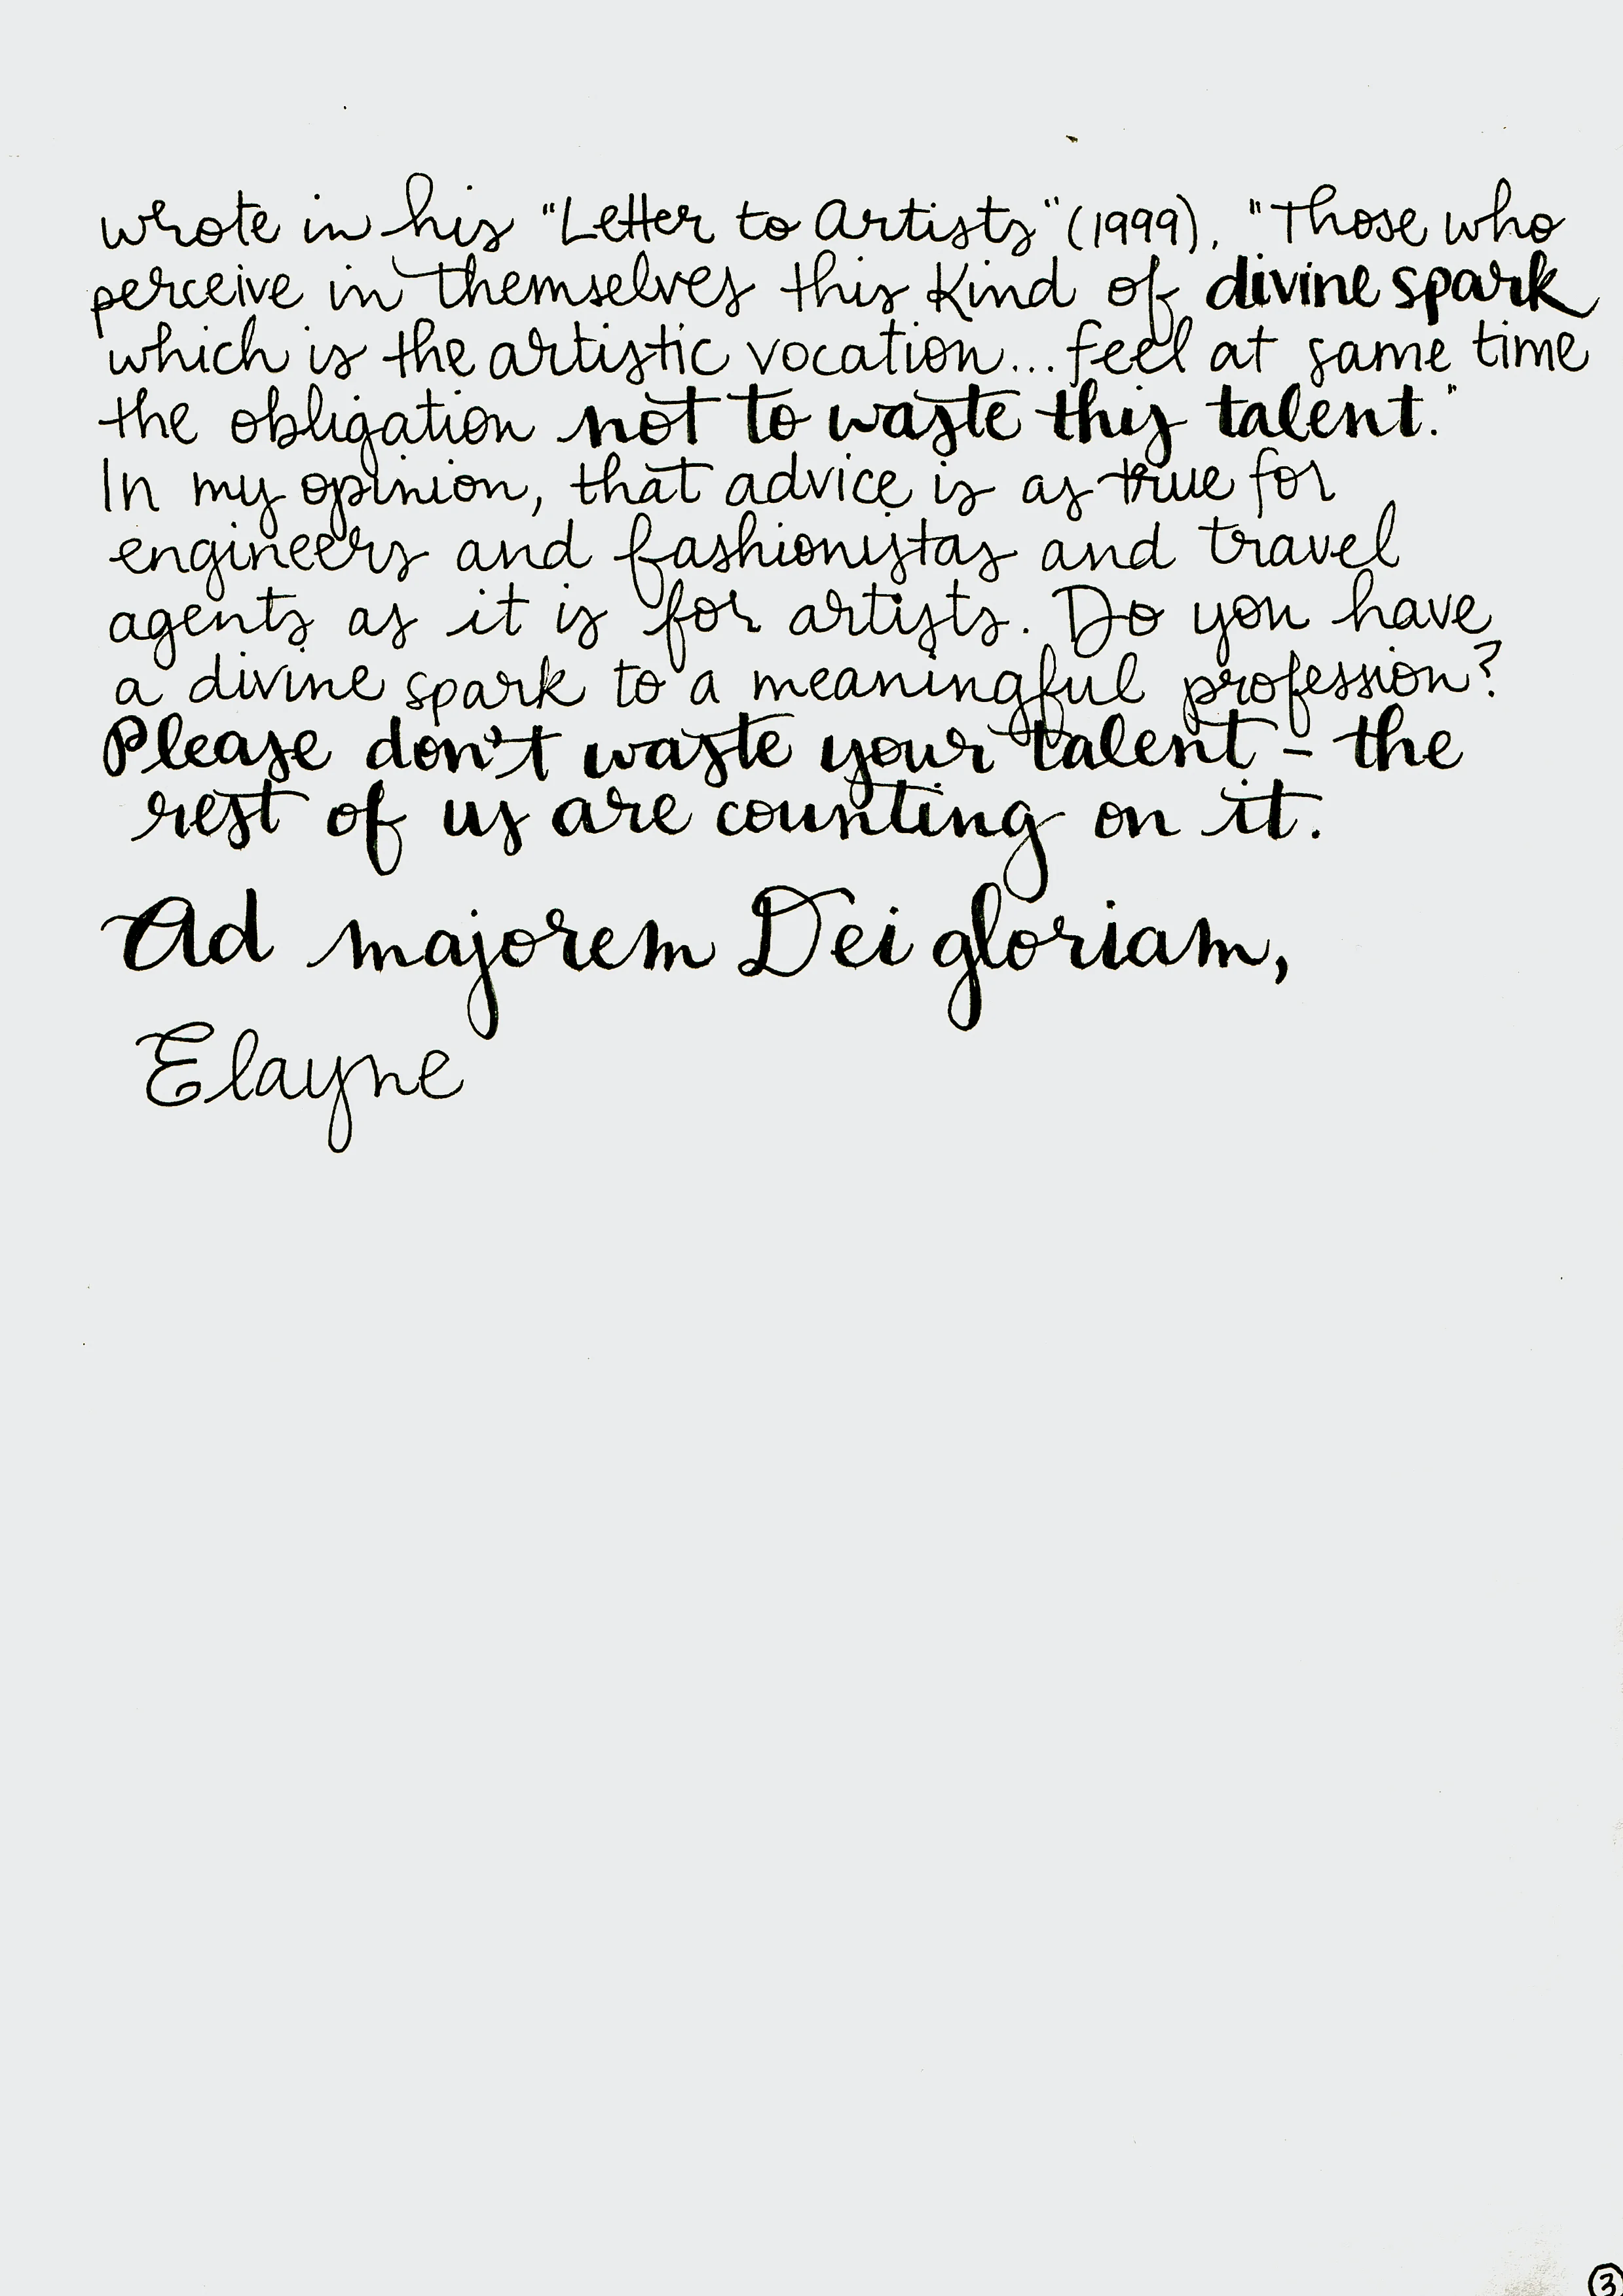 wrote in his "Letter to Artists" (1999), "Those who
perceive in themselves this kind of divine spark
which is the artistic vocation... feel at same time
the obligation not to waste this talent."
In my opinion, that advice is as true for
engineers and fashionistas and travel
agents as it is for artists. Do you have
a divine spark to a meaningful profession?
Please don't waste your talent - the
rest of us are counting on it.
Ad majorem Dei gloriam,
Elayne
3